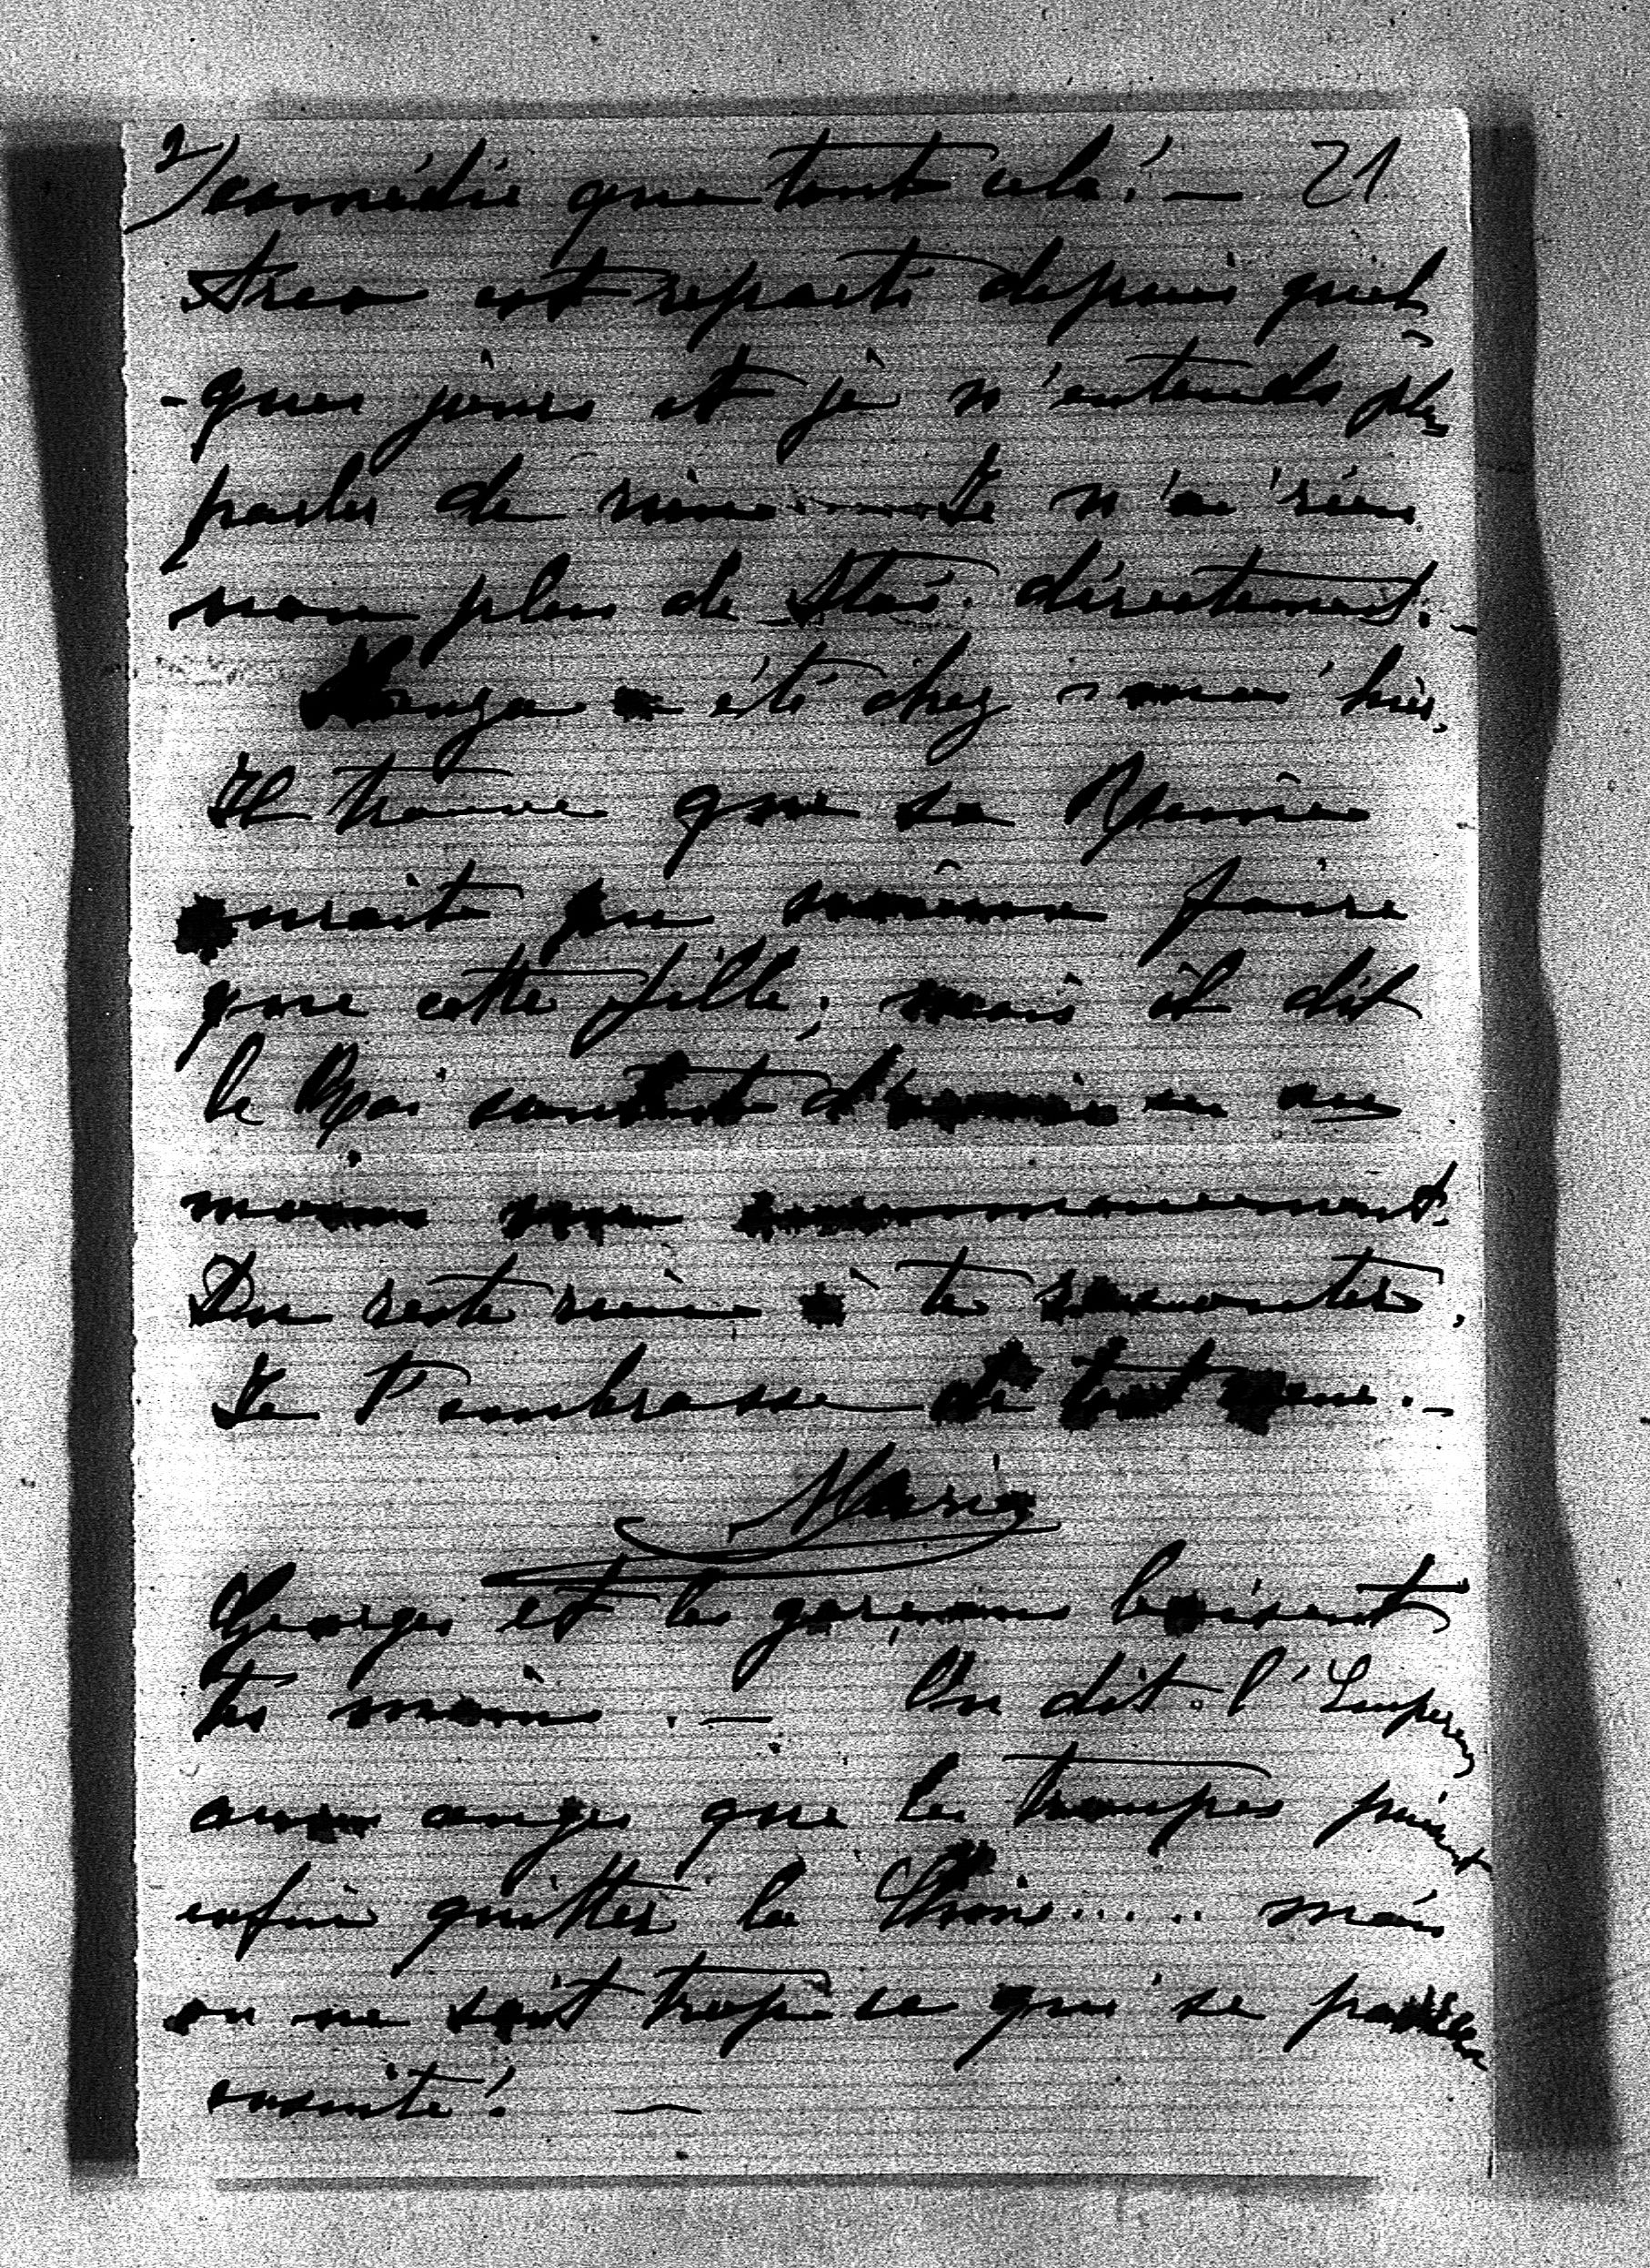 2/ comédie que tout cela! — 21
est reparti depuis quel
-ques jours et je n'entends plus
parler de rien ..... Je n'ai rien
non plus de Stas. directement. —
a été chez moi hier,
Il trouve que sa Reine
aurait pu faire
que cette fille, mais il dit
le Roi d'avoir eu au
moins son
Du reste rien à te raconter.
Je t'embrasse de tout cœur. —
Marie
Georges et les garçons baisent
tes mains. — On dit l'Empereur
que les troupes puissent
enfin quitter la Chine..... mais
on ne sait trop ce qui se passera
ensuite! —